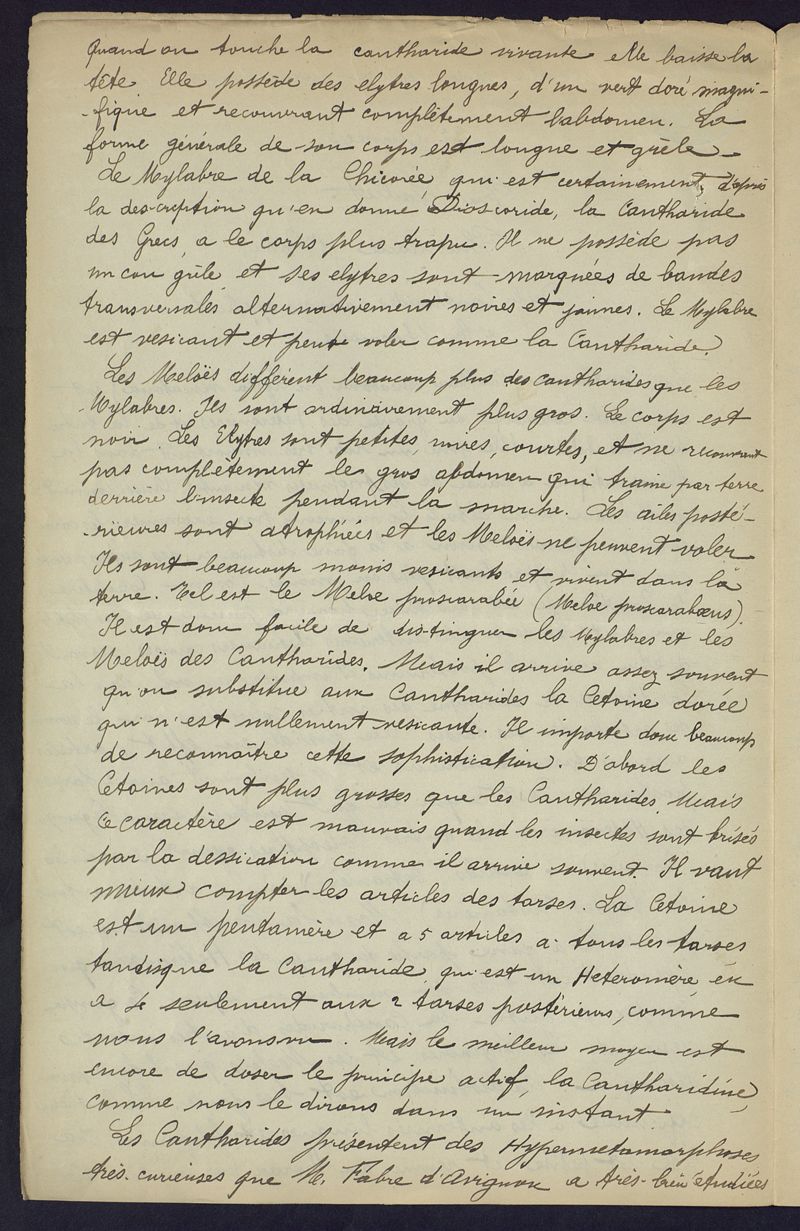 Quand on touche la cantharide vivante elle baisse la
tête. Elle possède des elytres longues, d'un vert doré magni-
-fique et recouvrant complètement l'abdomen. La
forme générale de son corps est longue et grêle.
Le Mylabre de la Chicorée, qui est certainement, d'après
la description qu'en donne Dioscoride, la Cantharide
des Grecs, a le corps plus trapu. Il ne possède pas
un cou grêle et ses elytres sont marquées de bandes
transversales alternativement noires et jaunes. Le Mylabre
est vesicant et peut voler comme la Cantharide.
Les Meloës diffèrent beaucoup plus des cantharides que les
Mylabres. Ils sont ordinairement plus gros. Le corps est
noir. Les Elytres sont petites, noires, courtes, et ne recouvrant
pas complètement le gros abdomen qui traine par terre
derrière l'insecte pendant la marche. Les ailes posté-
-rieures sont atrophiées et les Meloës ne peuvent voler
Ils sont beaucoup moins vesicants et vivent dans la
terre. Tel est le Meloe proscarabée (Meloe proscarabœus).
Il est donc facile de distinguer les Mylabres et les
Meloës des Cantharides. Mais il arrive assez souvent
qu'on substitue aux Cantharides la Cetoine dorée
qui n'est nullement vesicante. Il importe donc beaucoup
de reconnaître cette sophistication. D'abord les
Cétoines sont plus grosses que les Cantharides. Mais
ce caractère est mauvais quand les insectes sont brisés
par la dessication comme il arrive souvent. Il vaut
mieux compter les articles des tarses. La Cetoine
est un pentamère et a 5 articles a tous les tarses
tandis que la Cantharide qui est un Heteromère en
a 4 seulement aux 2 tarses postérieurs, comme
nous l'avons vu. Mais le meilleur moyen est
encore de doser le principe actif, la Cantharidine,
comme nous le dirons dans un instant
Les Cantharides présentent des Hypermetamorphoses
très-curieuses que M. Fabre d'Avignon a très-bien étudiées